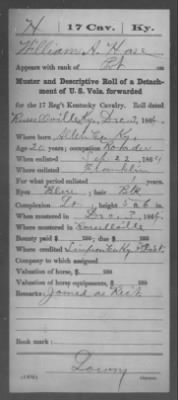 H | 17 Cav. | Ky.
William H. Hase
Appears with rank of Pvt on
Muster and Descriptive Roll of a Detachment of U. S. Vols. forwarded
for the 17 Reg't Kentucky Cavalry. Roll dated
Russellville Ky, Dec 7, 1864.
Where born Ky.
Age 20 years; occupation
When enlisted Sep 22, 1864
Where enlisted Franklin
For what period enlisted 1 years.
Eyes Blue; hair Blk
Complexion Lt; height 5 ft. 6 in.
When mustered in Dec 7, 1864.
Where mustered in Russellville
Bounty paid $ 100; due $ 100
Where credited Simpson Co Ky
Company to which assigned
Valuation of horse, $ 100
Valuation of horse equipments, $ 100
Remarks: Joined as Rect
Book mark: